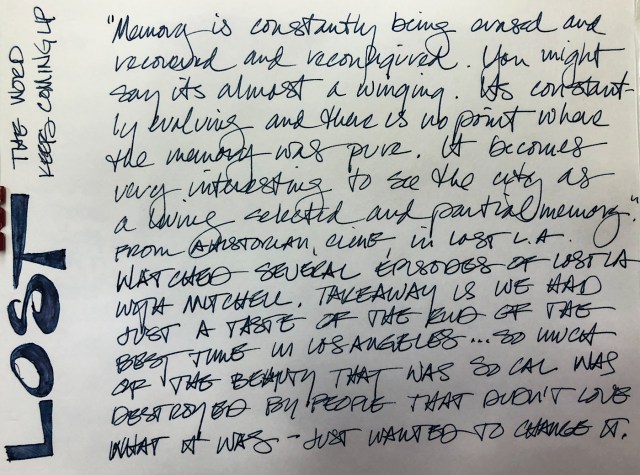 THE WORD
KEEPS COMING UP
LOST
"Memory is constantly being erased and
recovered and reconfigured. You might
say its almost a winging. Its constant-
ly evolving and there is no point where
the memory was pure. It becomes
very interesting to see the city as
a living selected and partial memory."
FROM A HISTORIAN, in LOST L.A.
WATCHED SEVERAL EPISODES OF LOST LA
WITH MITCHELL. TAKEAWAY IS WE HAD
JUST A TASTE OF THE END OF THE
BEST TIME IN LOS ANGELES...SO MUCH
OF THE BEAUTY THAT WAS SO CAL WAS
DESTROYED BY PEOPLE THAT DIDN'T LOVE
WHAT IT WAS - JUST WANTED TO CHANGE IT.